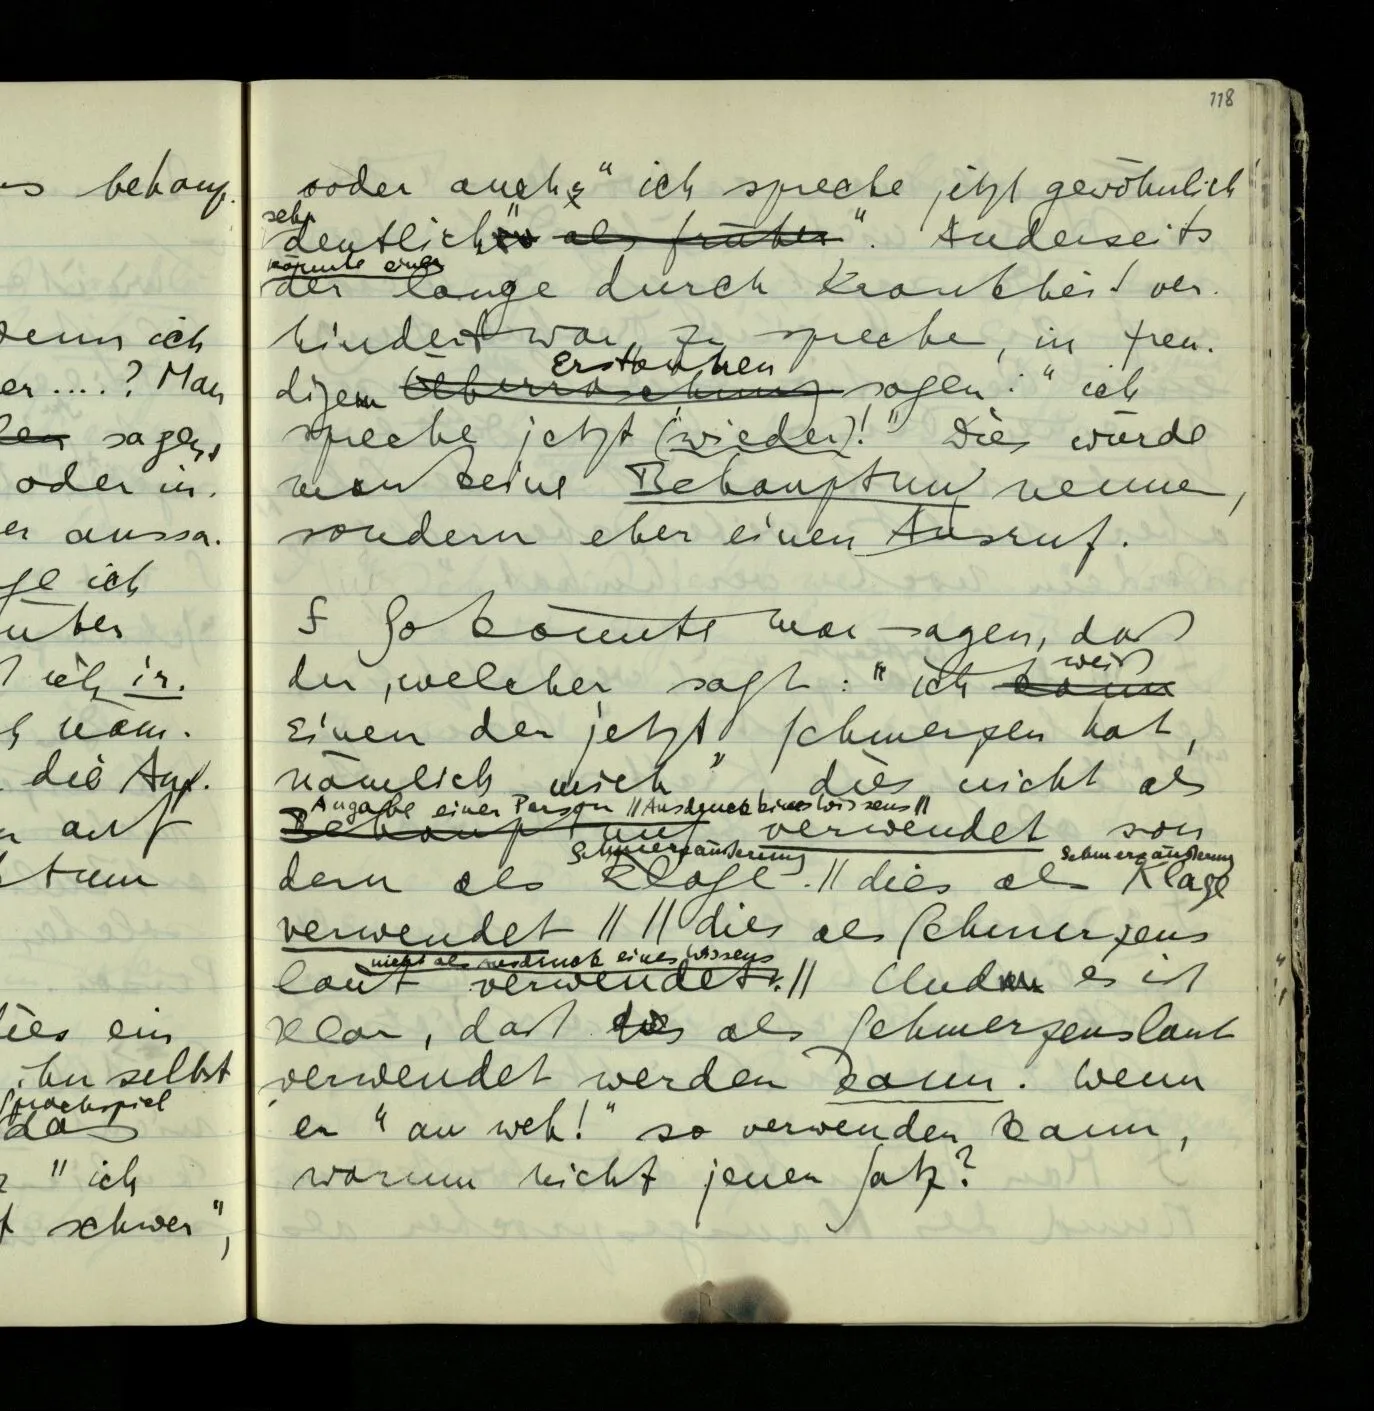 118
s behaup-
enn ich
er ....? Man
sagen,
oder in-
er aussa-
ge ich
über
ich in-
näm-
die Auf-
auf
tum
dies ein
ihn selbst
Sprachspiel
das
" ich
schwer",
oder auch " ich spreche jetzt gewöhnlich
sehr
deutlicher" als früher". Anderseits
könnte einer
der lange durch Krankheit ver-
hindert war zu sprechen, in freu-
Erstaunen
digem Überraschung sagen: " ich
spreche jetzt (wieder)!" Dies würde
man keine Behauptung nennen,
sondern eher einen Ausruf.
∫ So könnte man sagen, daß
weiß
der, welcher sagt: " ich kann
einen der jetzt Schmerzen hat,
nämlich mich" dies nicht als
Angabe einer Person // Ausdruck eines Wissens //
Behauptung verwendet son
Schmerzäußerung Schmerzäußerung
dern als Klage. // dies als Klage
verwendet // // dies als Schmerzens
nicht als Ausdruck eines Wissens
laut verwendet. // Und es ist
klar, daß als Schmerzenslaut
verwendet werden kann. Wenn
er " au weh!" so verwenden kann,
warum nicht jenen Satz?